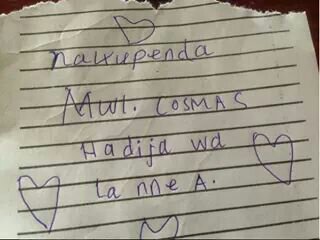 nakupenda
Mwl. COSMAS
Hadija wa
la nne A.